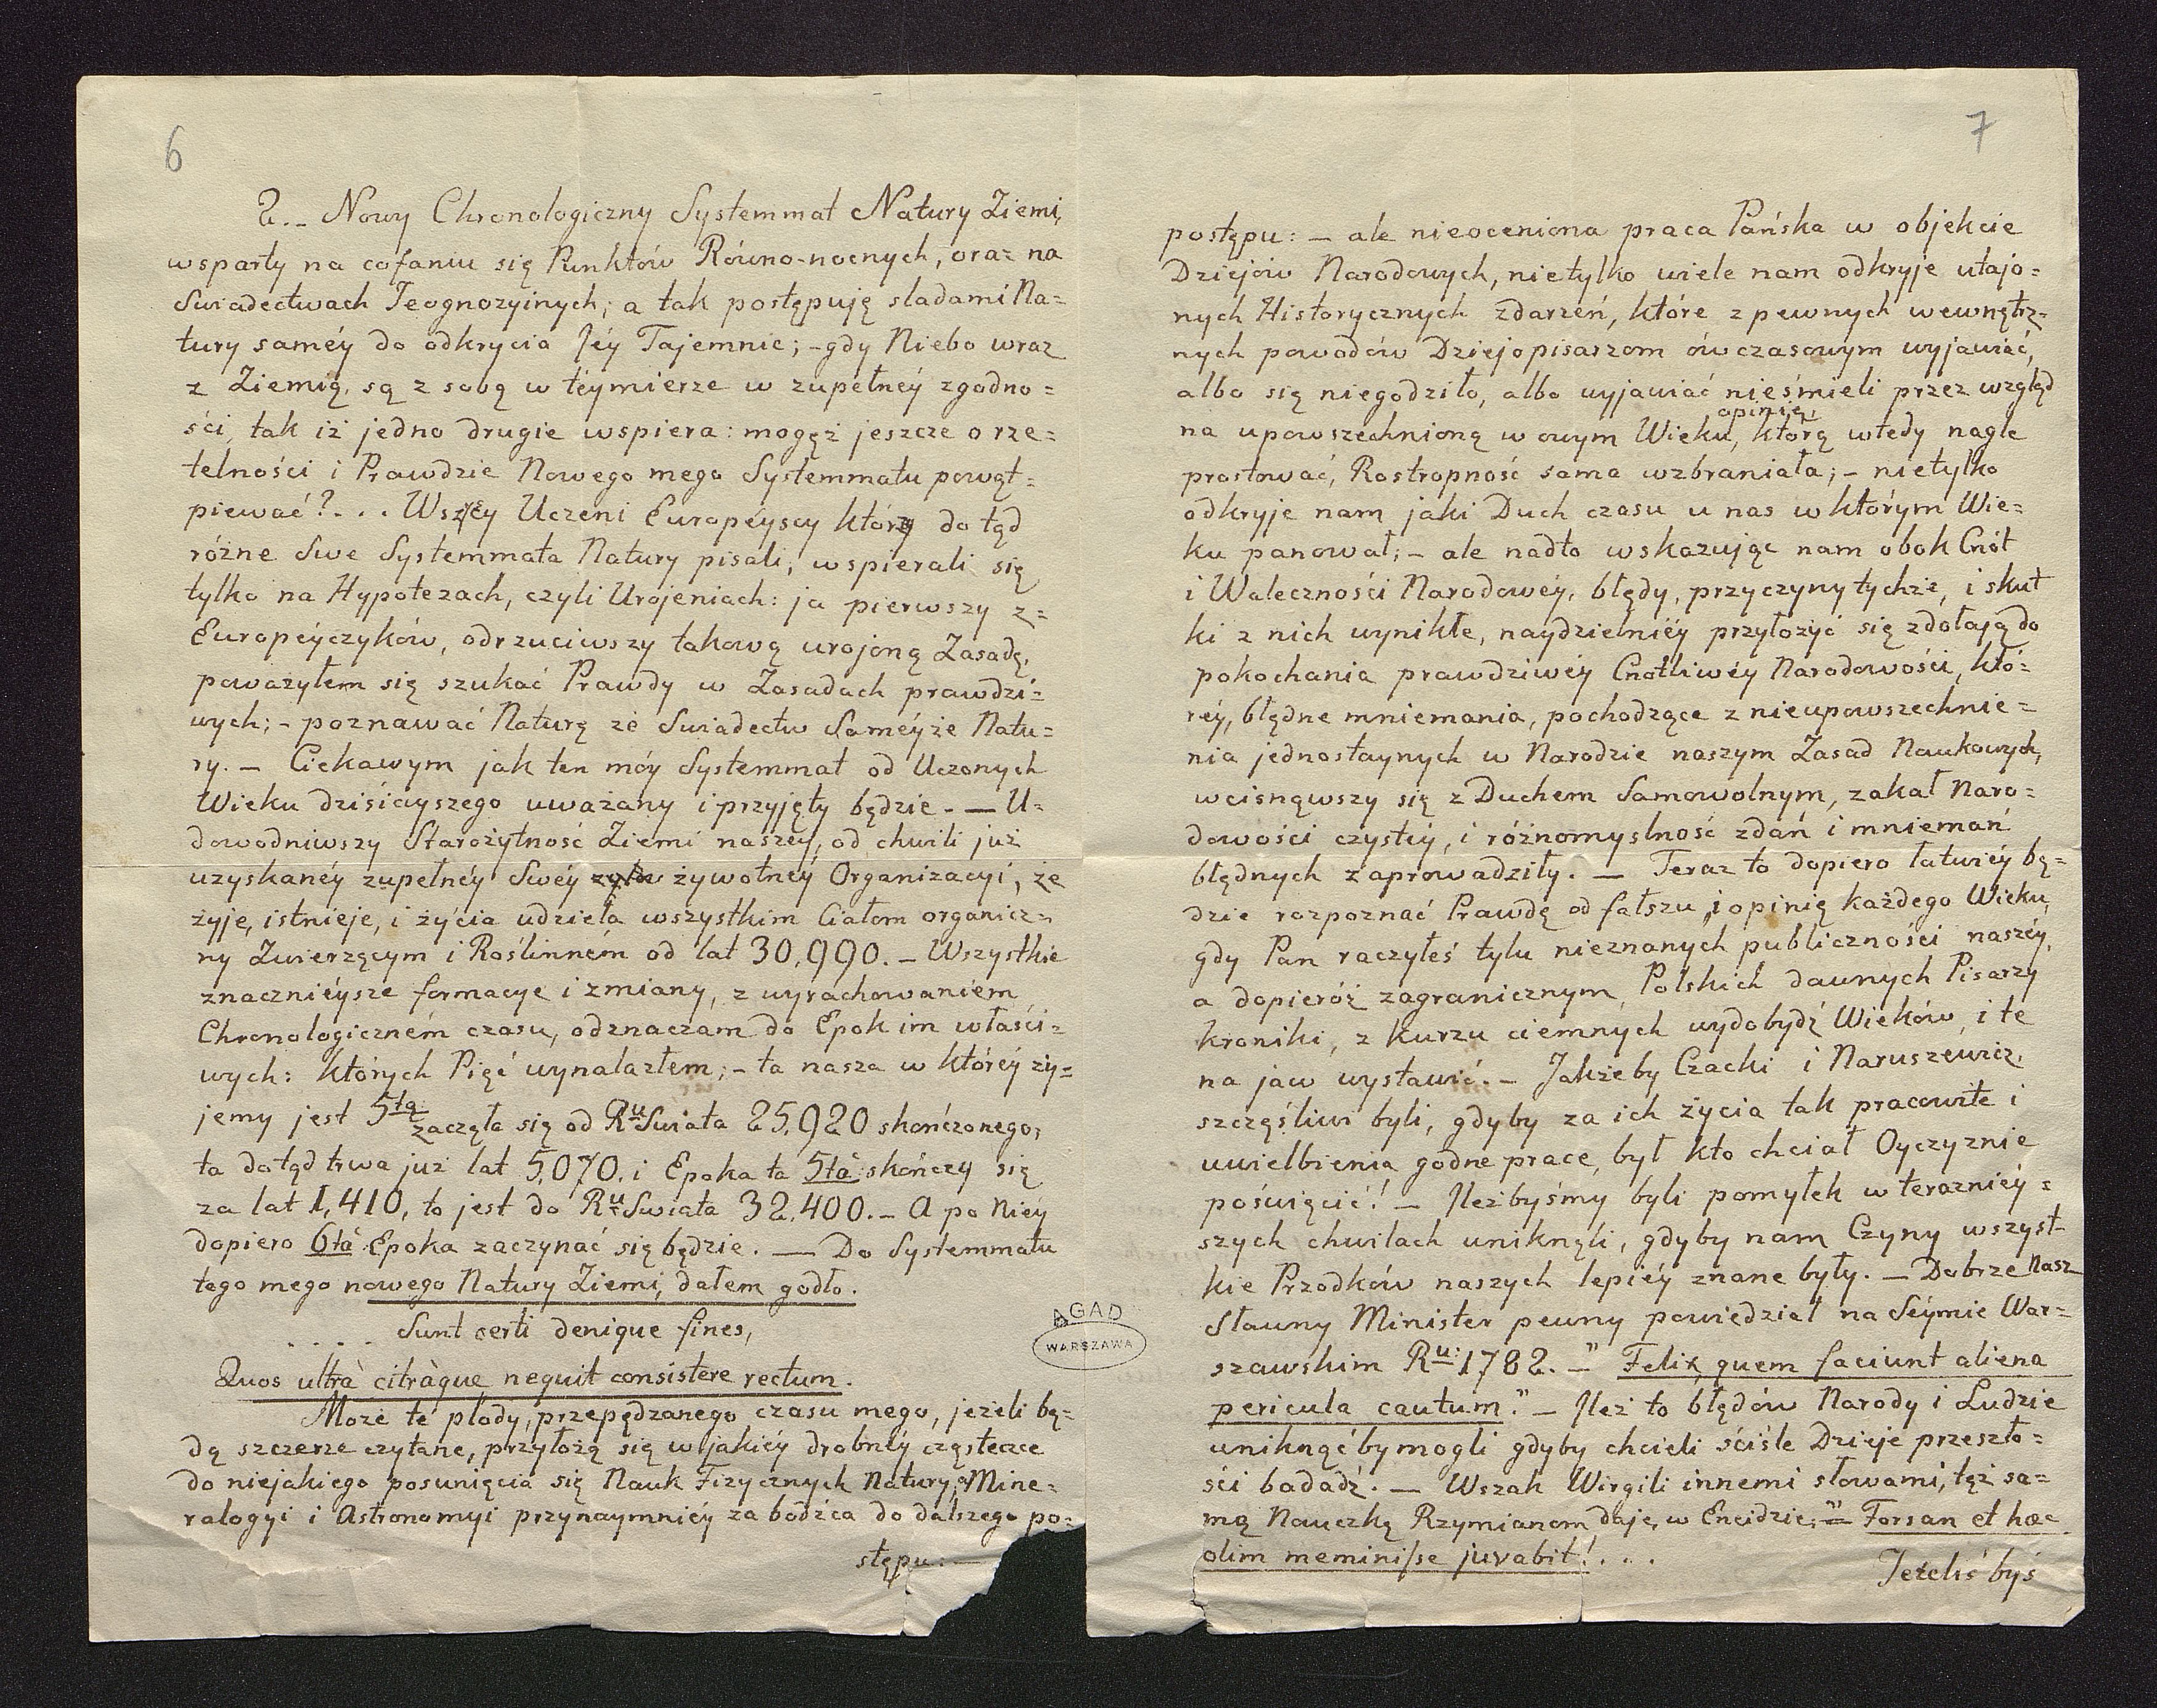 6
2.- Nowy Chronologiczny Systemmat Natury Ziemi,
wsparty na cofaniu się Punktów Równo-nocnych, oraz na
Swiadectwach Jeognozyinych; a tak postępuję sladami Na=
tury saméy do odkrycia Jéy Tajemnic; - gdy Niebo wraz
z Ziemią, są z sobą w téymierze w zupełnéy zgodno=
ści, tak iż jedno drugie wspiera: mogęż jeszcze o rze=
telności i Prawdzie Nowego mego Systemmatu powąt=
piewać?... Wszyscy Uczeni Européyscy którzy do tąd
różne Swe Systemmata Natury pisali, wspierali się
tylko na Hypotezach, czyli Urojeniach: ja pierwszy z=
Européyczyków, odrzuciwszy takową urojoną Zasadę,
poważyłem się szukać Prawdy w Zasadach prawdzi=
wych; - poznawać Naturę ze Swiadectw Saméyże Natu=
ry. - Ciekawym jak ten móy Systemmat od Uczonych
Wieku dzisieyszego uważany i przyjęty będzie. — U=
dowodniwszy Starożytność Ziemi naszey, od chwili już
uzyskanéy zupełnéy Swéy żywotnéy Organizacyi, że
żyje, istnieje, i życia udziela wszystkim Ciałom organicz=
ny Zwierzęcym i Roślinném od lat 30,990. - Wszystkie
znaczniéysze formacye i zmiany, z wyrachowaniem
Chronologiczném czasu, odznaczam do Epok im właści=
wych: których Pięć wynalazłem; - ta nasza w któréy ży=
jemy jest 5tą zaczęła się od Ru Swiata 25,920 skończonego,
ta dotąd trwa już lat 5,070. i Epoka ta 5tà skończy się
za lat 1,410, to jest do Ru Swiata 32,400. - A po Niéy
dopiero 6tà Epoka zaczynać się będzie. — Do Systemmatu
tego mego nowego Natury Ziemi, dałem godło.
.... Sunt certi denique fines,
Quos ultrà citràque nequit consistere rectum.
Może te płody, przepędzanego czasu mego, jeżeli bę=
dą szczerze czytane, przyłożą się w jakiéy drobnéy cząsteczce
do niejakiego posunięcia się Nauk Fizycznych Natury, Mine=
ralogyi i Astronomyi przynaymniéy za bodźca do dalszego po=
stępu: —
7
postępu: - ale nieoceniona praca Pańska w objekcie
Dziejów Narodowych, nietylko wiele nam odkryje utajo=
nych Historycznych zdarzeń, które z pewnych wewnętrz=
nych powodów Dziejopisarzom ówczasowym wyjawiać,
albo się niegodziło, albo wyjawiać nieśmieli przez wzgląd
opinię,
na upowszechnioną w owym Wieku, którą wtedy nagle
prostować, Rostropność sama wzbraniała; - nietylko
odkryje nam jaki Duch czasu u nas w którym Wie=
ku panował; - ale nadto wskazując nam obok Cnót
i Waleczności Narodowéy, błędy, przyczyny tychże, i skut
ki z nich wynikłe, naydzielniéy przyłożyć się zdołają do
pokochania prawdziwéy Cnotliwéy Narodowości, któ=
réy, błędne mniemania, pochodzące z nieupowszechnie=
nia jednostaynych w Narodzie naszym Zasad Naukowych,
wcisnąwszy się z Duchem Samowolnym, zakał Naro=
dowości czystéy, i różnomyslność zdań i mniemań
błędnych zaprowadziły. — Teraz to dopiero łatwiéy bę=
dzie rozpoznać Prawdę od fałszu, i opinię każdego Wieku,
gdy Pan raczyłeś tylu nieznanych publiczności naszéy,
a dopieróż zagranicznym, Polskich dawnych Pisarzy
kroniki, z kurzu ciemnych wydobydź Wieków, i te
na jaw wystawić. - Jakżeby Czacki i Naruszewicz,
szczęśliwi byli, gdyby za ich życia tak pracowite i
uwielbienia godne prace, był kto chciał Oyczyznie
poświęcić! - Ileżbyśmy byli pomyłek w terazniéy=
szych chwilach uniknęli, gdyby nam Czyny wszyst
kie Przodków naszych lepiéy znane były. - Dobrze Nasz
Sławny Minister pewny powiedział na Séymie War=
szawskim Ru: 1782. - "Felix, quem faciunt aliena
pericula cautum." - Ileż to błędów Narody i Ludzie
uniknąćby mogli gdyby chcieli ściśle Dzieje przeszło=
ści badadź. — Wszak Wirgili innemi słowami, też sa=
mą Nauczkę Rzymianom daje, w Eneidzie: "Forsan et hæc
olim meminisse juvabit!...
Jeżeliś byś
AGAD
WARSZAWA